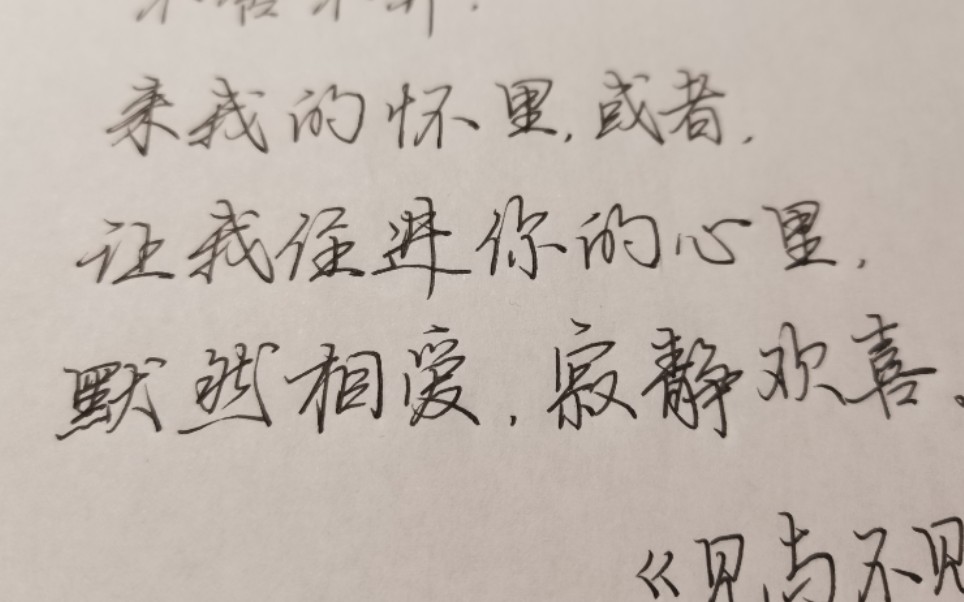 来我的怀里,或者,
让我住进你的心里,
默然相爱,寂静欢喜。
《见与不见